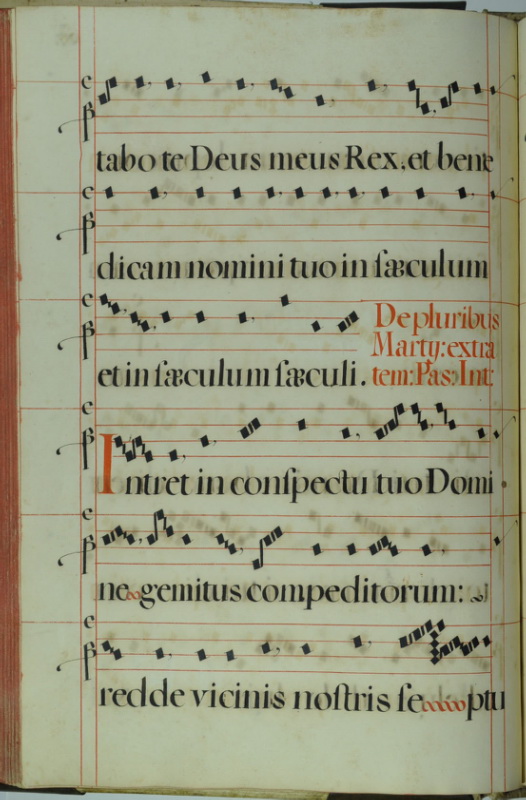 tabo te Deus meus Rex. et bene
dicam nomini tuo in ſæculum
et in ſæculum ſæculi.
De pluribus
Marty: extra
tem: Pas: Int:
Intret in conſpectu tuo Domi
ne gemitus compeditorum:
redde vicinis noſtris ſe ptu